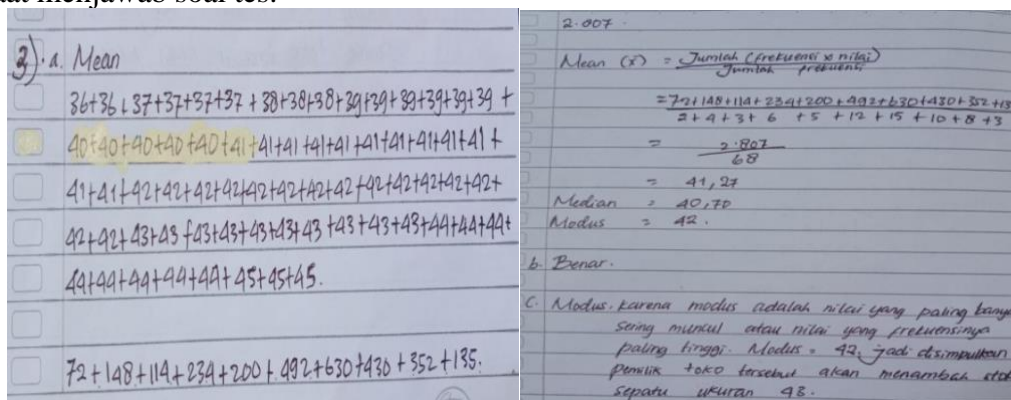 saat menjawab soal tes.
3). a. Mean
36+36+37+37+37+37+38+38+38+39+39+39+39+39+39 +
40+40+40+40+40+41+41+41+41+41+41+41+41+41+41 +
41+41+42+42+42+42+42+42+42+42+42+42+42+42+42+
42+42+43+43+43+43+43+43+43+43+43+43+44+44+44+
44+44+44+44+44+45+45+45.
72+148+114+234+200+492+630+430+352+135.
2.807
Mean (x̄) = Jumlah (frekuensi x nilai)
Jumlah frekuensi
= 72+148+114+234+200+492+630+430+352+13
2+4+3+6 +5 +12 +15 +10+8+3
= 2.807
68
= 41,27
Median = 40,70
Modus = 42.
b. Benar.
C. Modus. karena modus adalah nilai yang paling
sering muncul atau nilai yang frekuensinya
paling tinggi. Modus = 42, jadi disimpulkan
pemilik toko tersebut akan menambah
sepatu ukuran 43.